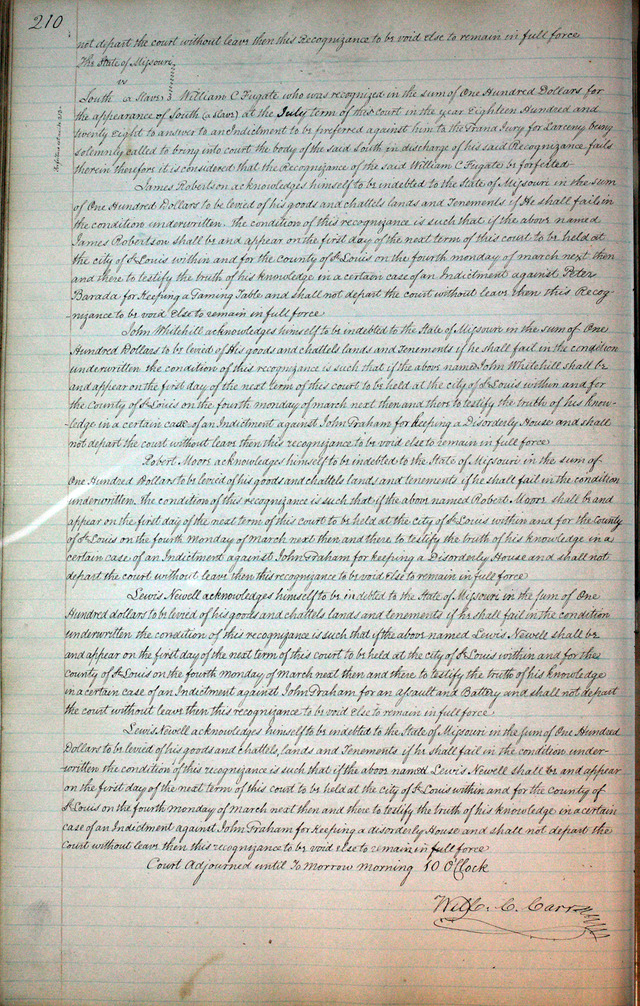 210
not depart the court without leave then this Recognizance to be void else to remain in full force
The State of Missouri
vs
South (a slave) William C Fugate who was recognized in the sum of One Hundred Dollars for
the appearance of South (a slave) at the July term of this court in the year Eighteen Hundred and
twenty Eight to answer to an Indictment to be preferred against him to the Grand Jury for Larceny being
solemnly called to bring into court the body of the said South in discharge of his said Recognizance fails
therein therefore it is considered that the Recognizance of the said William C Fugate be forfeited
James Robertson acknowledges himself to be indebted to the State of Missouri in the sum
of One Hundred Dollars to be levied of his goods and chattels lands and Tenements if He shall fail in
the condition underwritten. the condition of this recognizance is such that if the above named
James Robertson shall be and appear on the first day of the next term of this court to be held at
the city of St Louis within and for the county of St Louis on the fourth monday of march next then
and there to testify the truth of his knowledge in a certain case of an Indictment against Peter
Barada for keeping a Gaming Table and shall not depart the court without leave then this Recog-
-nizance to be void Else to remain in full force
John Whitehill acknowledges himself to be indebted to the State of Missouri in the sum of One
Hundred Dollars to be levied of His goods and chattels lands and Tenements if he shall fail in the condition
underwritten the condition of this recognizance is such that if the above named John Whitehill shall be
and appear on the first day of the next term of this court to be held at the city of St Louis within and for
the County of St Louis on the fourth monday of march next then and there to testify the truth of his know-
-ledge in a certain case of an Indictment against John Graham for keeping a Disorderly House and shall
not depart the court without leave then this recognizance to be void else to remain in full force
Robert Moore acknowledges himself to be indebted to the State of Missouri in the sum of
One Hundred Dollars to be levied of his goods and chattels lands and tenements if he shall fail in the condition
underwritten. the condition of this recognizance is such that if the above named Robert Moore shall be and
appear on the first day of the next term of this court to be held at the city of St Louis within and for the County
of St Louis on the fourth monday of March next then and there to testify the truth of his knowledge in a
certain case of an Indictment against John Graham for keeping a Disorderly House and shall not
depart the court without leave then this recognizance to be void Else to remain in full force
Lewis Newell acknowledges himself to be indebted to the State of Missouri in the sum of One
Hundred dollars to be levied of his goods and chattels lands and tenements if he shall fail in the condition
underwritten the condition of this recognizance is such that if the above named Lewis Newell shall be
and appear on the first day of the next term of this court to be held at the city of St Louis within and for the
county of St Louis on the fourth monday of March next then and there to testify the truth of his knowledge
in a certain case of an Indictment against John Graham for an assault and Battery and shall not depart
the court without leave then this recognizance to be void Else to remain in full force
Lewis Newell acknowledges himself to be indebted to the State of Missouri in the sum of One Hundred
Dollars to be levied of his goods and chattels, lands and Tenements if he shall fail in the condition under-
-written the condition of this recognizance is such that if the above named Lewis Newell shall be and appear
on the first day of the next term of this court to be held at the city of St Louis within and for the County of
St Louis on the fourth monday of March next then and there to testify the truth of his knowledge in a certain
case of an Indictment against John Graham for keeping a disorderly House and shall not depart the
Court without leave then this recognizance to be void Else to remain in full force
Court Adjourned until To Morrow Morning 10 O'Clock
Will. C. Carr